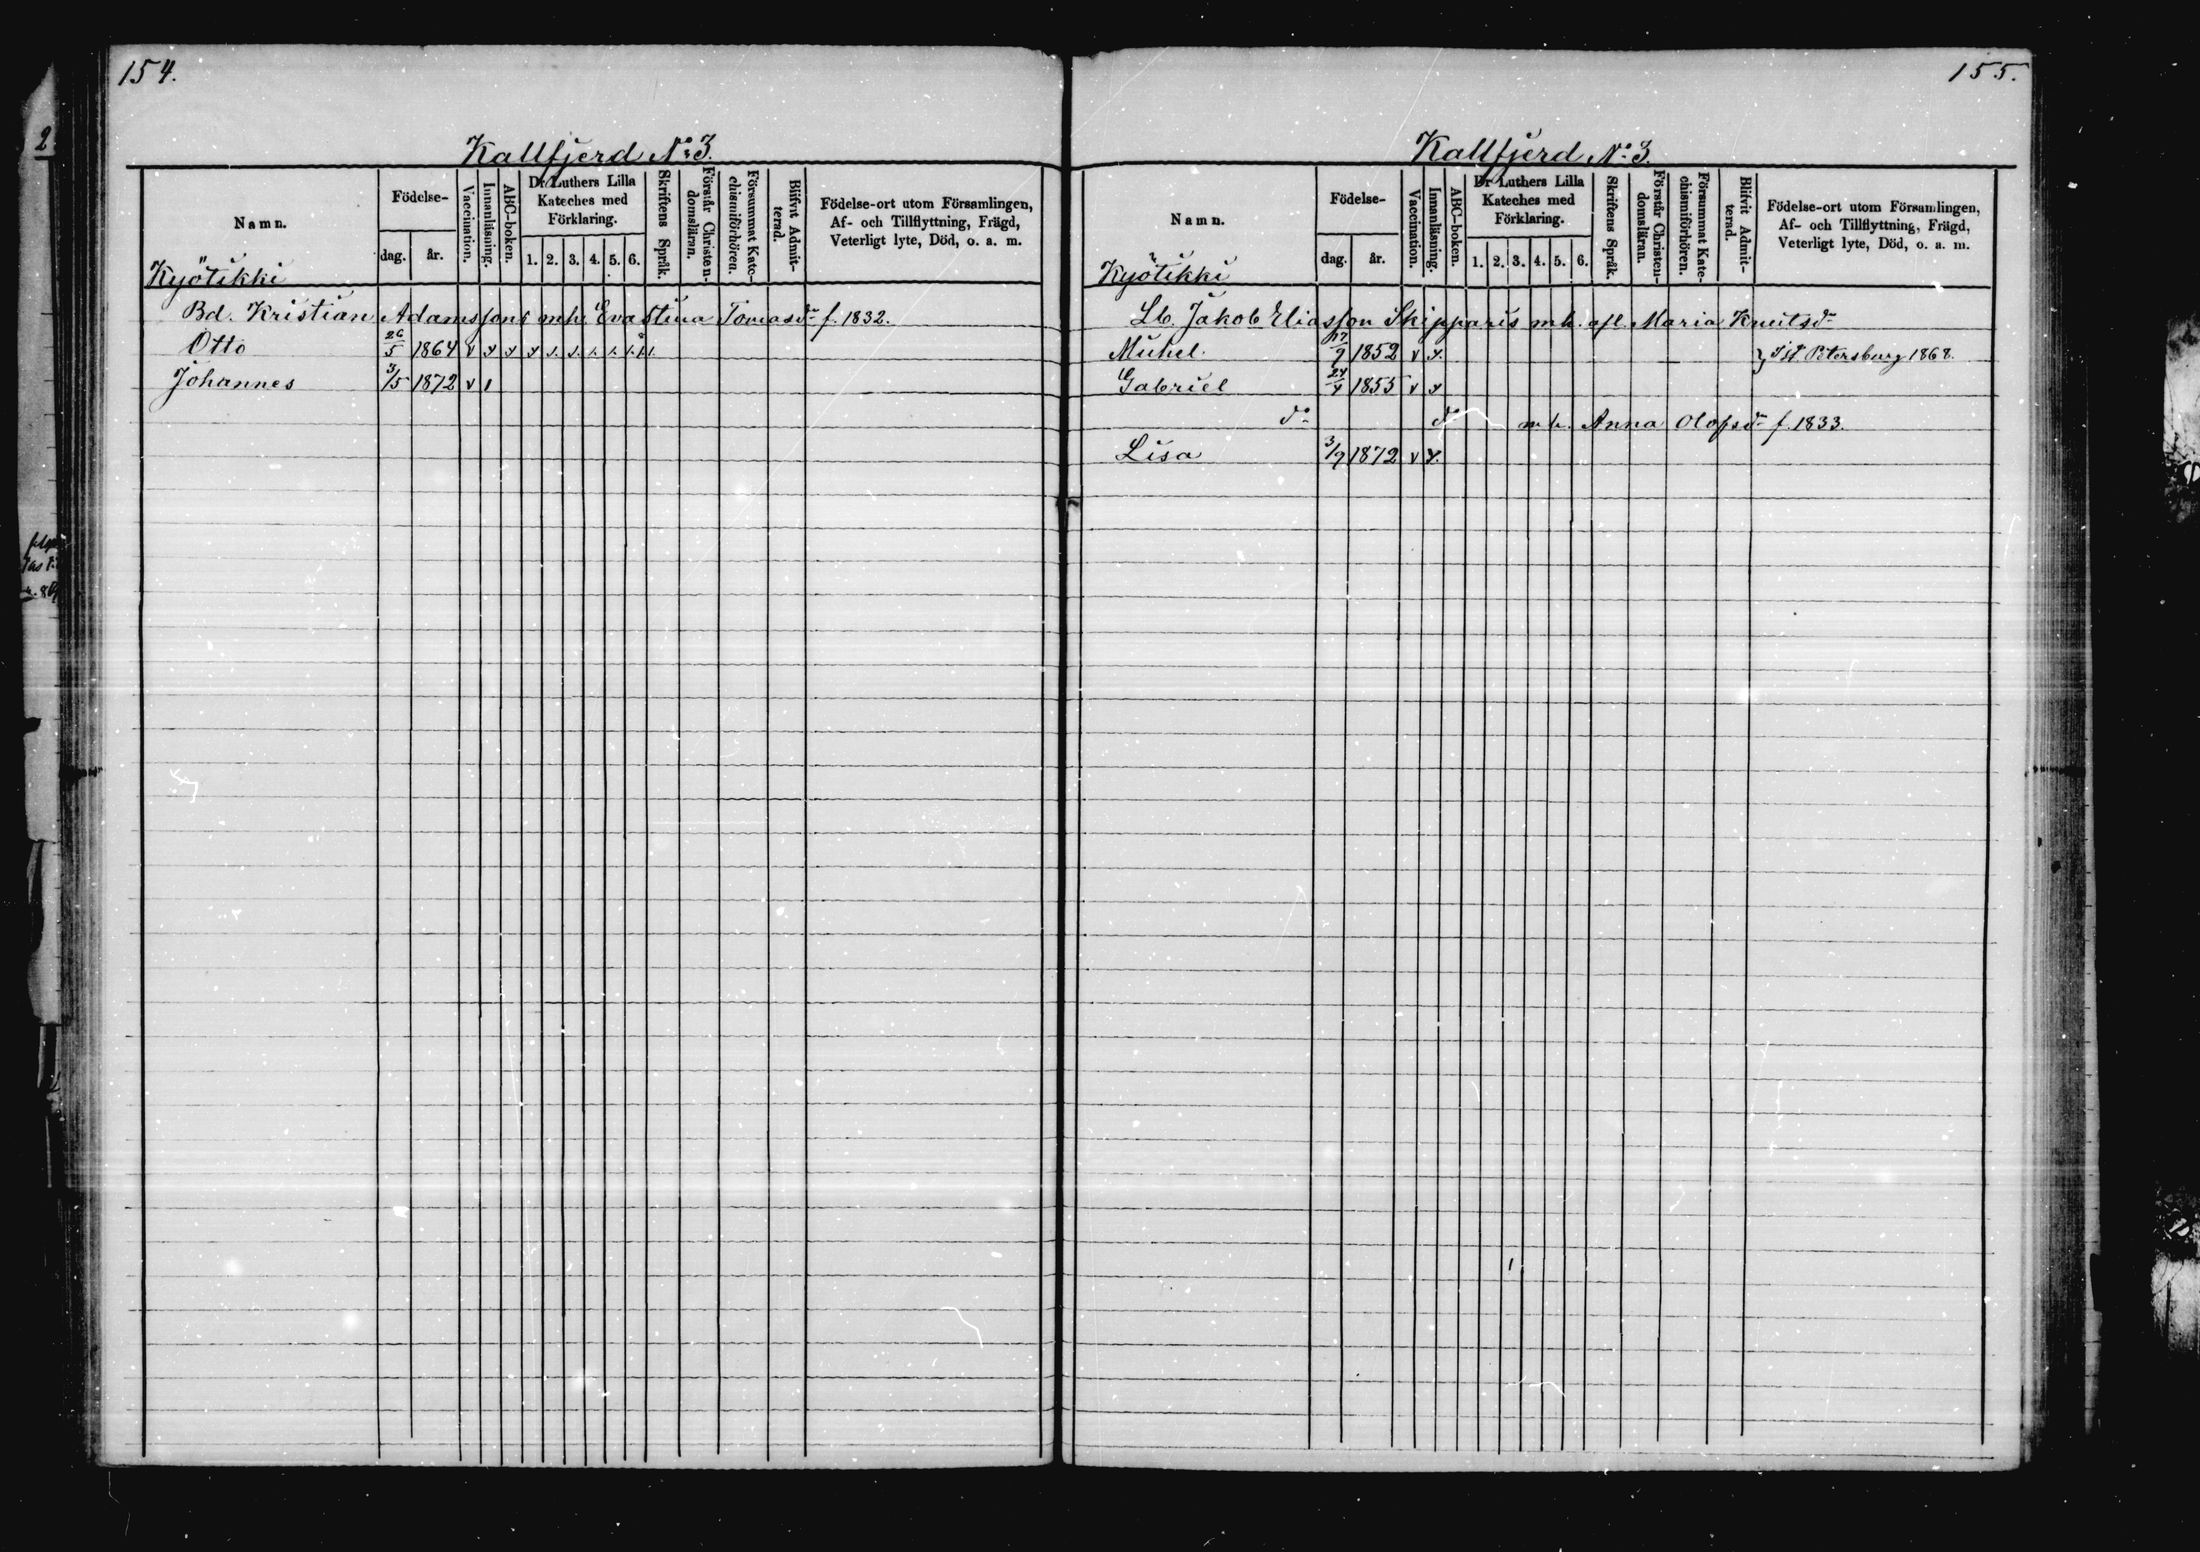 154.
Kallfjerd No 3.
Namn.
Födelse-
dag.
år.
Vaccination.
Innanläsning.
ABC-boken.
Dr Luthers Lilla
Kateches med
Förklaring.
1. 2. 3. 4. 5. 6.
Skriftens Språk.
Förstår Christen-
domsläran.
Försummat Kate-
chismiförhören.
Blifvit Admit-
terad.
Födelse-ort utom Församlingen,
Af- och Tillflyttning, Frägd,
Veterligt lyte, Död, o. a. m.
Kyötikki
Bd. Kristian Adamssons m h. Eva Stina Tomasdr f. 1832.
Otto 26/5 1864
Johannes 3/5 1872
155.
Kallfjerd No 3.
Namn.
Födelse-
dag.
år.
Vaccination.
Innanläsning.
ABC-boken.
Dr Luthers Lilla
Kateches med
Förklaring.
1. 2. 3. 4. 5. 6.
Skriftens Språk.
Förstår Christen-
domsläran.
Försummat Kate-
chismiförhören.
Blifvit Admit-
terad.
Födelse-ort utom Församlingen,
Af- och Tillflyttning, Frägd,
Veterligt lyte, Död, o. a. m.
Kyötikki
Lb. Jakob Eliasson Skipparis m h. afl. Maria Knutsdr
Mickel. 17/9 1852 } i S:t Petersburg 1868.
Gabriel 24/4 1855
do do m h. Anna Olofsdr f. 1833.
Lisa 3/9 1872